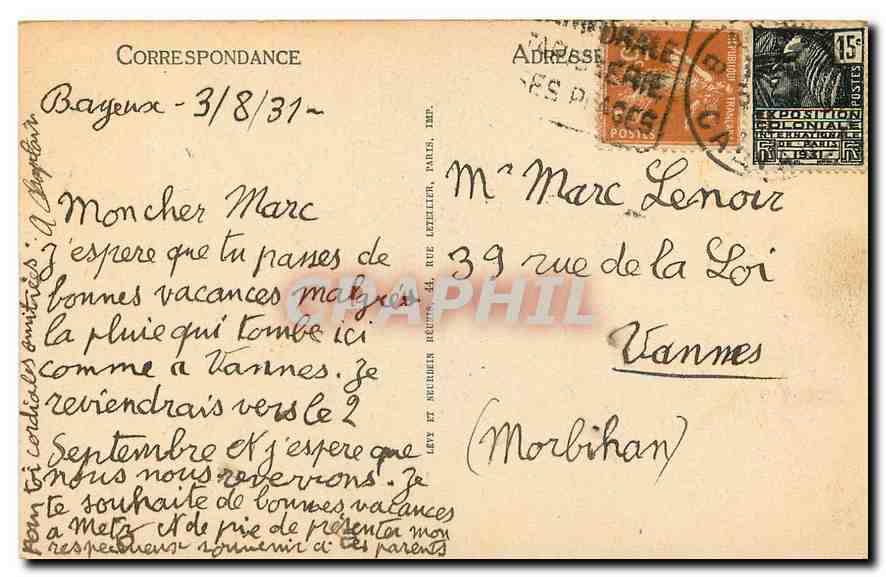 CORRESPONDANCE
ADRESSE
Bayeux - 3/8/31 -
Mon cher Marc
J'espere que tu passes de
bonnes vacances malgrés
la pluie qui tombe ici
comme a Vannes. Je
reviendrais vers le 2
Septembre et j'espere que
nous nous reverrons. Je
te souhaite de bonnes vacances
a Metz et de prie de présenter mon
respectueux souvenir à tes parents
pour toi cordiales amitiées: A
LÉVY ET NEURDEIN RÉUNIS, 44, RUE LETELLIER, PARIS, IMP.
RÉPUBLIQUE FRANÇAISE
POSTES
15c
POSTES
EXPOSITION
COLONIALE
INTERNATIONALE
DE PARIS
1931
PLAGES
CA
Mr Marc Lenoir
39 rue de la Loi
Vannes
(Morbihan)
CPAPHIL